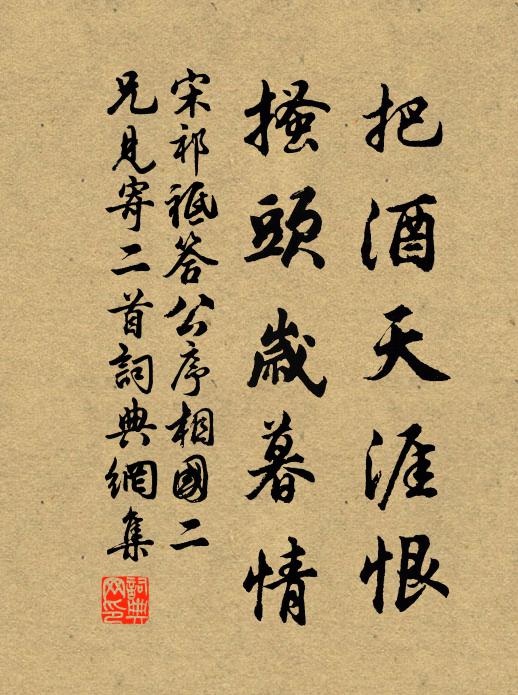 把酒天涯恨
搔頭歲暮情
宋祁祗答公序相國二
兄見寄二首詞典網集
詞典
网印